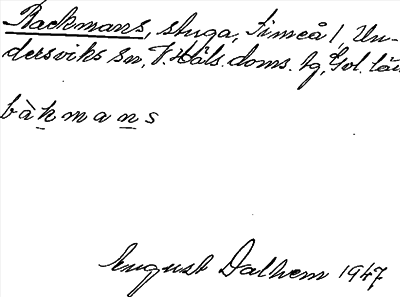 Backmans, stuga, Simeå 1, Un-
dersviks sn, V. Häls. doms. hg, Gvl. län
bàkmans
August Dalhem 1947